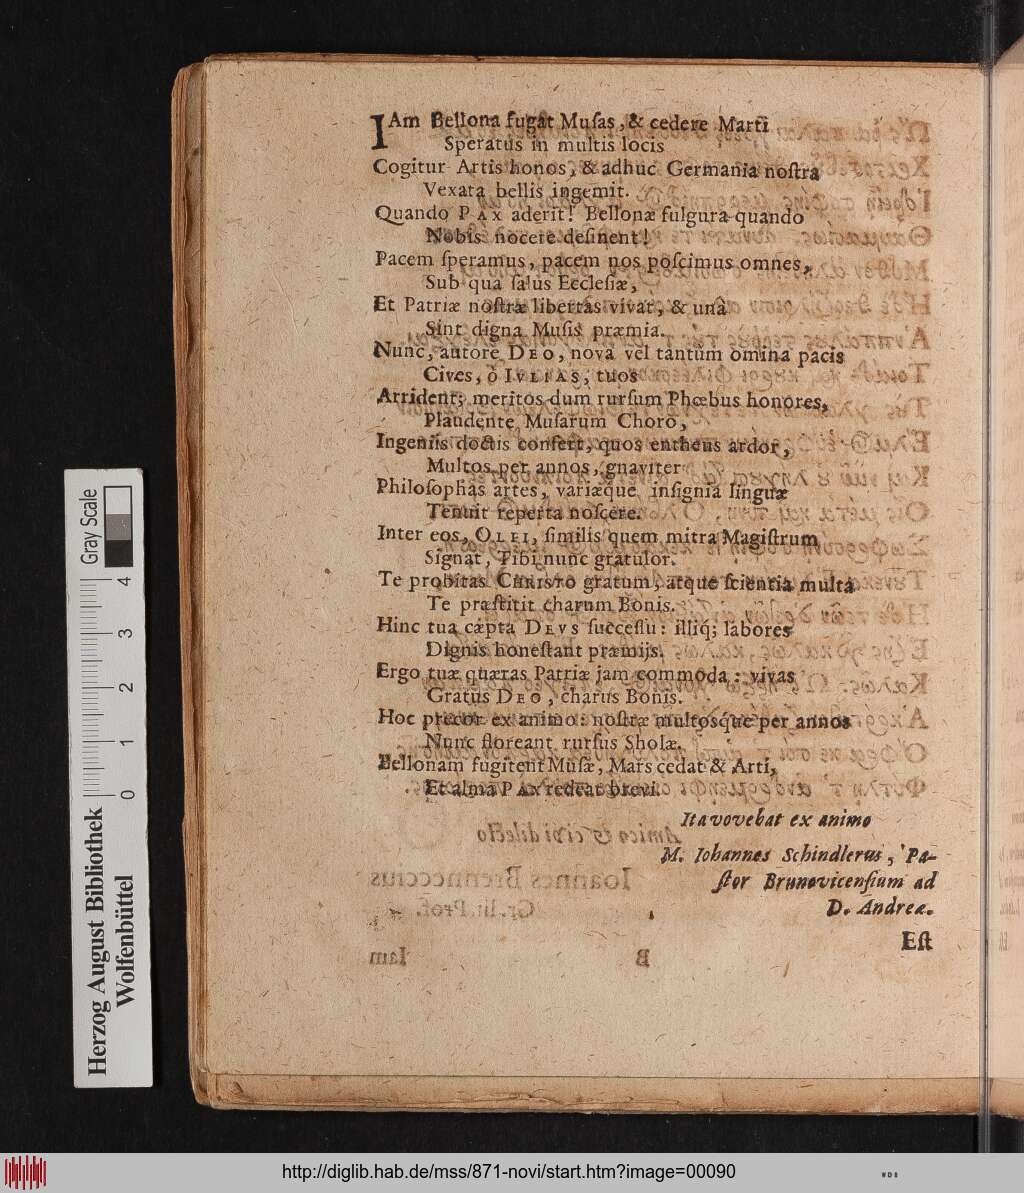 IAm Bellona fugat Musas, & cedere Marti
Speratus in multis locis
Cogitur Artis honos, & adhuc Germania nostra
Vexata bellis ingemit.
Quando PAX aderit! Bellonæ fulgura quando
Nobis nocere desinent!
Pacem speramus, pacem nos poscimus omnes,
Sub qua salus Ecclesiæ,
Et Patriæ nostræ libertas vivat, & unâ
Sint digna Musis præmia.
Nunc, autore DEO, nova vel tantùm omina pacis
Cives, ô IVLIAS, tuos
Arrident; meritos dum rursum Phœbus honores,
Plaudente Musarum Choro,
Ingeniis doctis confert, quos entheus ardor,
Multos per annos, gnaviter
Philosophas artes, variæque insignia linguæ
Tenuit reperta noscere.
Inter eos, OLEI, similis quem mitra Magistrum
Signat, Tibi nunc gratulor.
Te probitas CHRISTO gratum, atque scientia multa
Te præstitit charum Bonis.
Hinc tua cæpta DEVS successu: illiq; labores
Dignis honestant præmijs.
Ergo tuæ quæras Patriæ jam commoda: vivas
Gratus DEO, charus Bonis.
Hoc precor ex animo: nostræ multosque per annos
Nunc floreant rursus Sholæ.
Bellonam fugitent Musæ, Mars cedat & Arti,
Et alma PAX redeat brevi.
Ita vovebat ex animo
M. Iohannes Schindlerus, Pa-
stor Brunovicensium ad
D. Andreæ.
Est
Gray Scale
4
3
2
1
0
Herzog August Bibliothek
Wolfenbüttel
http://diglib.hab.de/mss/871-novi/start.htm?image=00090